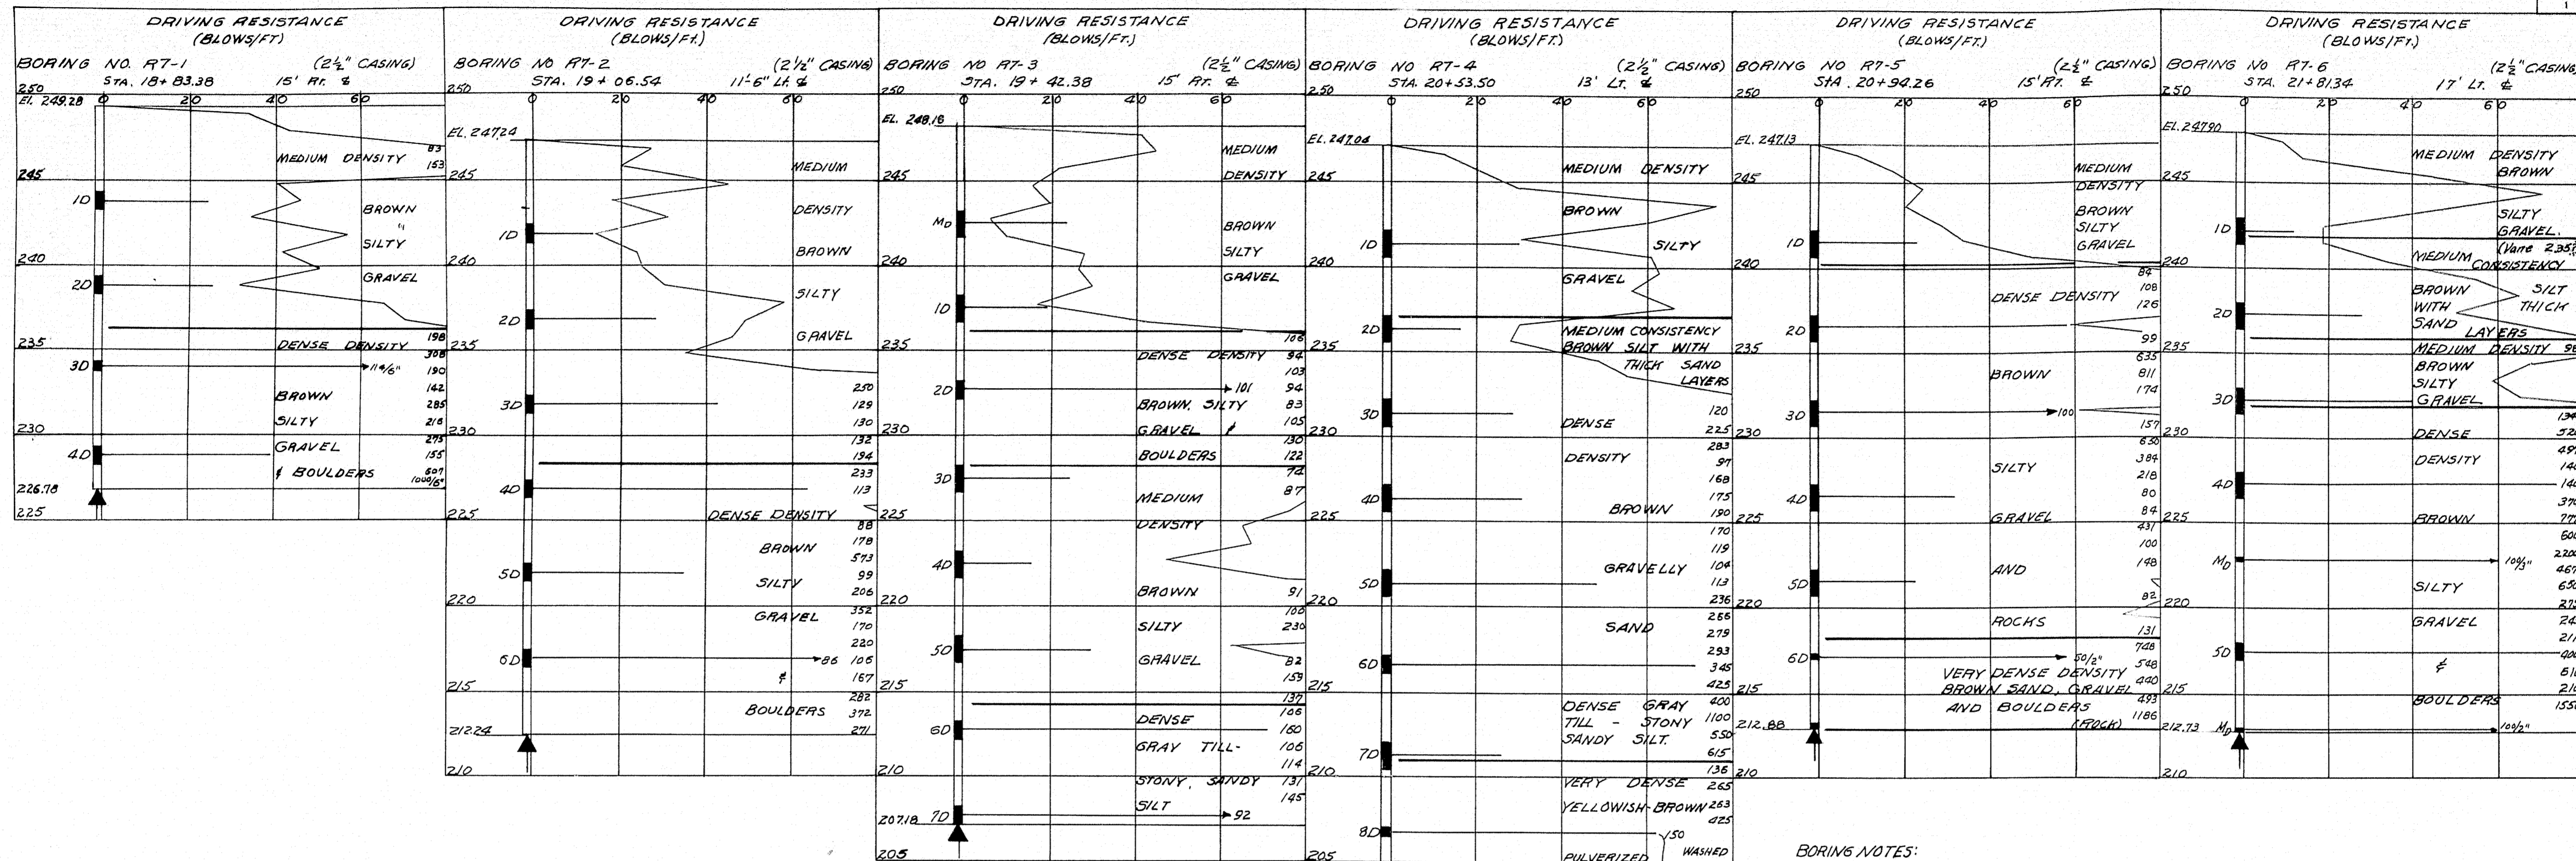 1
DRIVING RESISTANCE
(BLOWS/FT)
BORING NO. R7-1 (2½" CASING)
STA. 18+83.38 15' RT. ℄
250
0 20 40 60
EL. 249.28
83
MEDIUM DENSITY
153
245
1D
BROWN
"
SILTY
240
GRAVEL
2D
198
DENSE DENSITY
235
308
3D 114/6" 190
142
BROWN
285
SILTY 216
230
GRAVEL 275
4D 155
& BOULDERS 607
1000/6"
226.78
225
DRIVING RESISTANCE
(BLOWS/FT.)
BORING NO R7-2 (2½" CASING)
STA. 19+06.54 11'-6" LT. ℄
250
0 20 40 60
EL. 247.24
MEDIUM
245
DENSITY
1D
BROWN
240
SILTY
2D
GRAVEL
235
250
3D 129
130
230
132
194
233
4D 113
DENSE DENSITY
225
88
BROWN 178
573
5D 99
SILTY
206
220
GRAVEL 352
170
220
6D 86 106
& 167
215
282
BOULDERS 372
212.24 271
210
DRIVING RESISTANCE
(BLOWS/FT.)
BORING NO R7-3 (2½" CASING)
STA. 19+42.38 15' RT. ℄
250
0 20 40 60
EL. 248.18
MEDIUM
DENSITY
245
MD
BROWN
SILTY
240
GRAVEL
1D
106
235
DENSE DENSITY 94
103
2D 101 94
BROWN, SILTY 83
105
GRAVEL &
230
130
BOULDERS 122
74
3D
MEDIUM 87
225
DENSITY
4D
BROWN 91
220
100
SILTY 230
5D
GRAVEL 82
159
215
137
DENSE 106
6D 160
GRAY TILL- 106
114
210
STONY, SANDY 131
SILT 145
207.18 7D 92
205
DRIVING RESISTANCE
(BLOWS/FT.)
BORING NO R7-4 (2½" CASING)
STA. 20+53.50 13' LT. ℄
250
0 20 40 60
EL. 247.04
MEDIUM DENSITY
245
BROWN
1D SILTY
240
GRAVEL
2D MEDIUM CONSISTENCY
BROWN SILT WITH
235
THICK SAND
LAYERS
3D 120
DENSE 225
230
283
DENSITY 97
168
4D 175
BROWN 190
225
170
119
GRAVELLY 104
5D 113
236
220
266
SAND 279
293
6D 345
425
215
DENSE GRAY 400
TILL - STONY 1100
SANDY SILT. 550
7D 615
136
210
VERY DENSE 265
YELLOWISH-BROWN 263
425
8D 150
PULVERIZED WASHED
205
DRIVING RESISTANCE
(BLOWS/FT.)
BORING NO R7-5 (2½" CASING)
STA. 20+94.26 15' RT. ℄
250
0 20 40 60
EL. 247.13
MEDIUM
245
DENSITY
BROWN
SILTY
1D GRAVEL
240
84
108
DENSE DENSITY 126
2D
99
235
635
BROWN 811
174
3D 100
157
230
650
SILTY 384
218
4D 80
GRAVEL 84
225
431
100
AND 148
5D
82
220
ROCKS
131
748
6D 50/2" 548
VERY DENSE DENSITY 440
215
BROWN SAND, GRAVEL 493
AND BOULDERS 1186
212.88 (ROCK)
210
BORING NOTES:
DRIVING RESISTANCE
(BLOWS/FT.)
BORING NO R7-6 (2½" CASING)
STA. 21+81.34 17' LT. ℄
250
0 20 40 60
EL. 247.90
MEDIUM DENSITY
BROWN
245
SILTY
1D GRAVEL.
(Vane 2.35
MEDIUM CONSISTENCY
240
BROWN SILT
WITH THICK
2D SAND
LAYERS
235
MEDIUM DENSITY
BROWN
SILTY
3D GRAVEL
230
DENSE
DENSITY
4D
225
BROWN
MD 100/3"
SILTY
220
GRAVEL
5D
&
215
BOULDERS
212.73 MD 100/2"
210